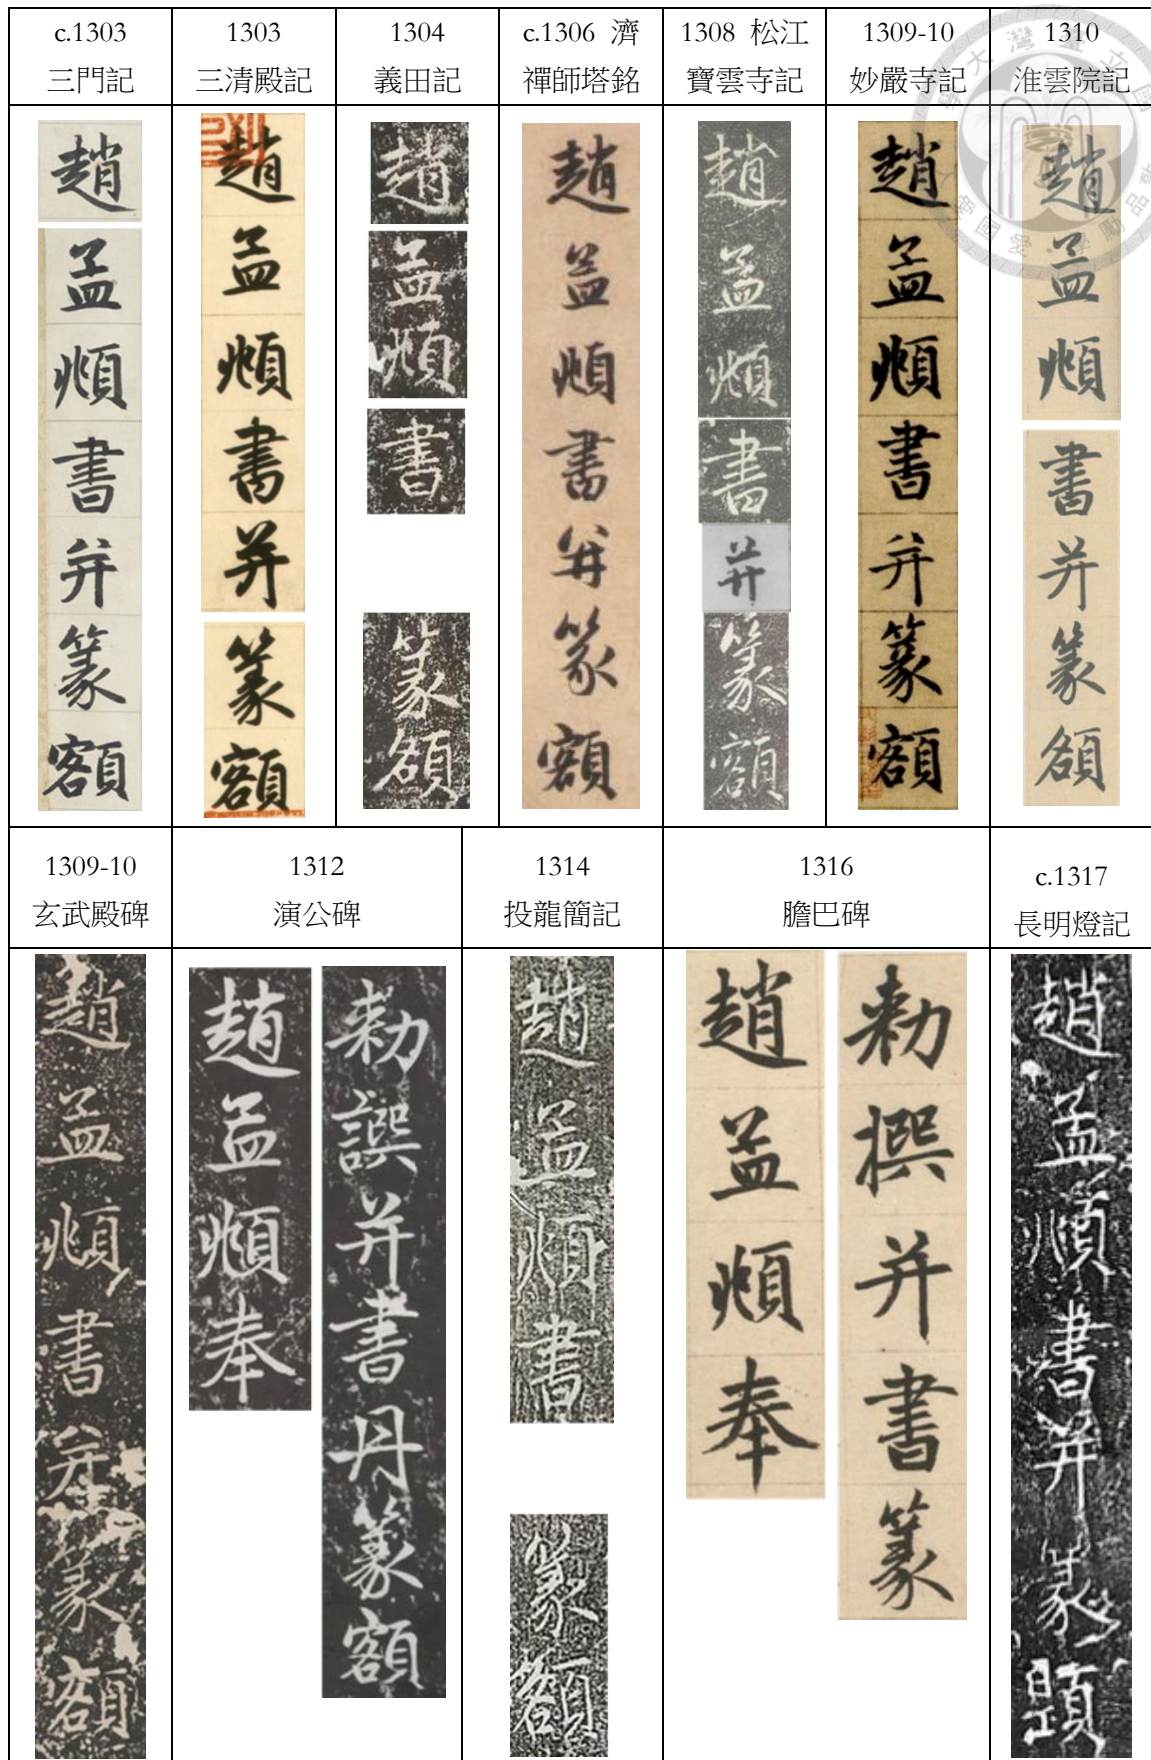 c.1303
三門記
1303
三清殿記
1304
義田記
c.1306 濟
禪師塔銘
1308 松江
寶雲寺記
1309-10
妙嚴寺記
1310
淮雲院記
趙孟頫書并篆額
趙孟頫書并篆額
趙孟頫書篆額
趙孟頫書并篆額
趙孟頫書并篆額
趙孟頫書并篆額
趙孟頫書并篆額
1309-10
玄武殿碑
1312
演公碑
1314
投龍簡記
1316
膽巴碑
c.1317
長明燈記
趙孟頫書并篆額
趙孟頫奉
勑譔并書丹篆額
趙孟頫書篆額
趙孟頫奉
勑撰并書篆
趙孟頫書并篆題